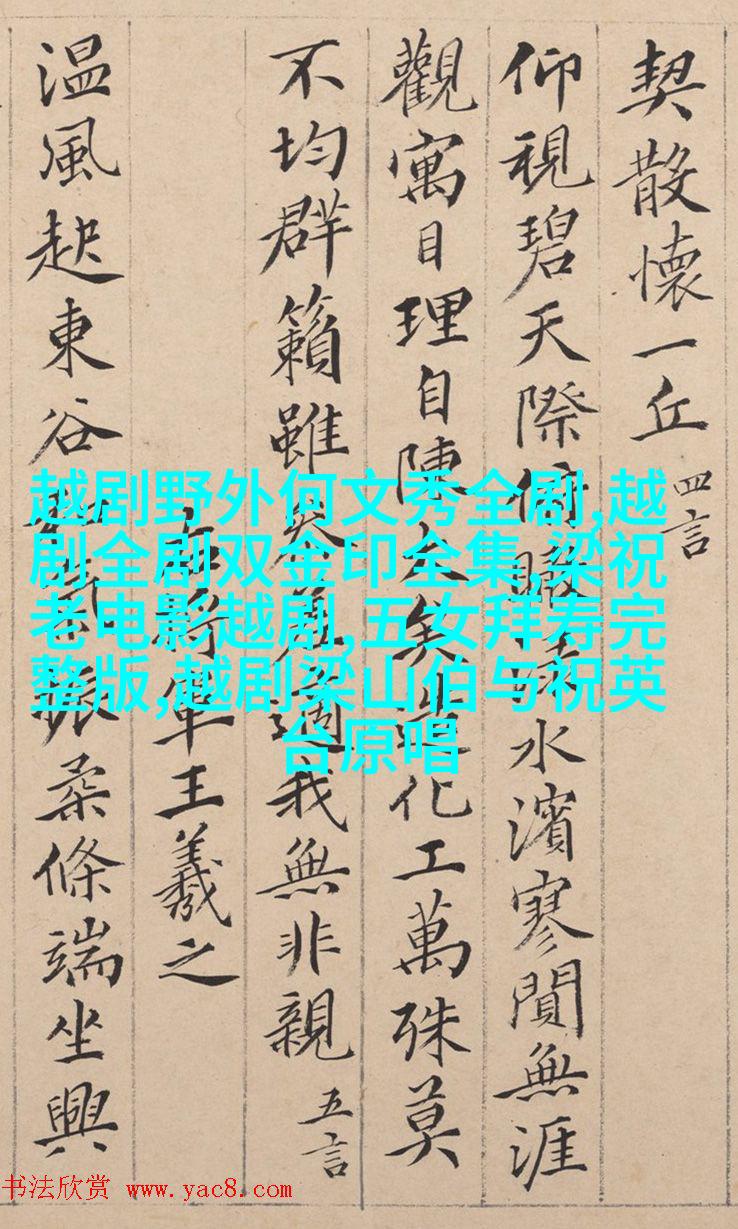 契散懷一丘 四言
仰視碧天際俯瞰淥水濱寥閴無涯
觀寓目理自陳大矣造化工萬殊莫
不均群籟雖參差適我無非親 五言
右將軍王羲之
温風起東谷和氣振柔條端坐興
越剧野外何文秀全剧,越
剧全剧双金印全集,梁祝
老电影越剧,五女拜寿完
整版,越剧梁山伯与祝英
台原唱
书法欣赏 www.yac8.com